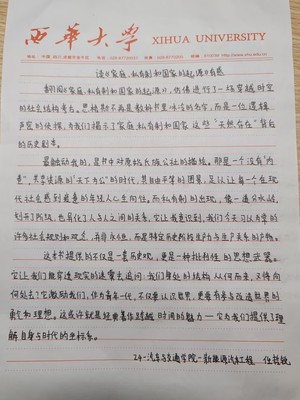 西华大学 XIHUA UNIVERSITY
读《家庭、私有制和国家的起源》有感
翻阅《家庭、私有制和国家的起源》，仿佛进行了一场穿越时空
的社会结构考古。恩格斯不再是教科书里冰冷的名字，而是一位逻辑
严密的侦探，为我们揭示了家庭、私有制和国家这些“天然存在”背后
的历史剧本。
最触动我的，是书中对原始氏族公社的描绘。那是一个没有“内
卷”、共享资源的“天下为公”的时代，其自由平等的图景，足以让每一个在现
代社会感到疲惫的年轻人心生向往。而私有制的出现，像一道分水岭，
划开了阶级，也异化了人与人之间的关系。它让我意识到，我们今天习以为常的
许多社会规则和观念，并非永恒，而是特定历史阶段生产力与生产关系的产物。
这本书提供的不仅是一套历史观，更是一种批判性的思想武器。
它让我们能穿透现实的迷雾去追问：我们身处的结构从何而来，又将向
何处去？它激励我们，作为青年一代，不仅要认识世界，更要有参与改造世界的
勇气和理想。这或许就是经典著作跨越时间的魅力——它为我们提供了理
解自身与时代的坐标系。
24-汽车与交通学院-新能源汽车工程